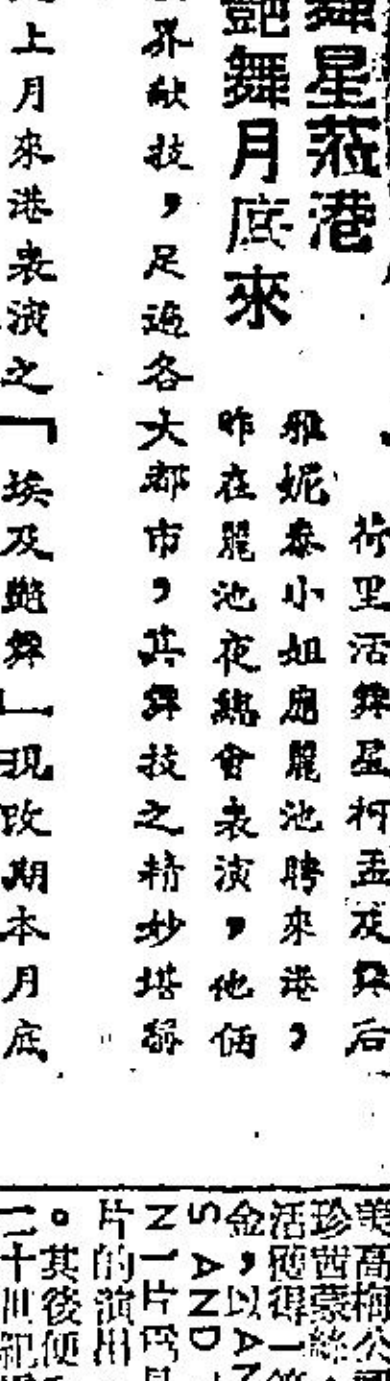 舞星蒞港
艷舞月底來
荷里活舞星柯孟及舞后
雅妮泰小姐應麗池聘來港，
昨在麗池夜總會表演，他倆
界獻技，足遍各大都市，其舞技之精妙堪稱
上月來港表演之「埃及艷舞」現改期本月底
美高梅公
珍茜蒙絲
活應得一
金，以AN
S AND
N］片
片的演出
。其後便
二十世紀